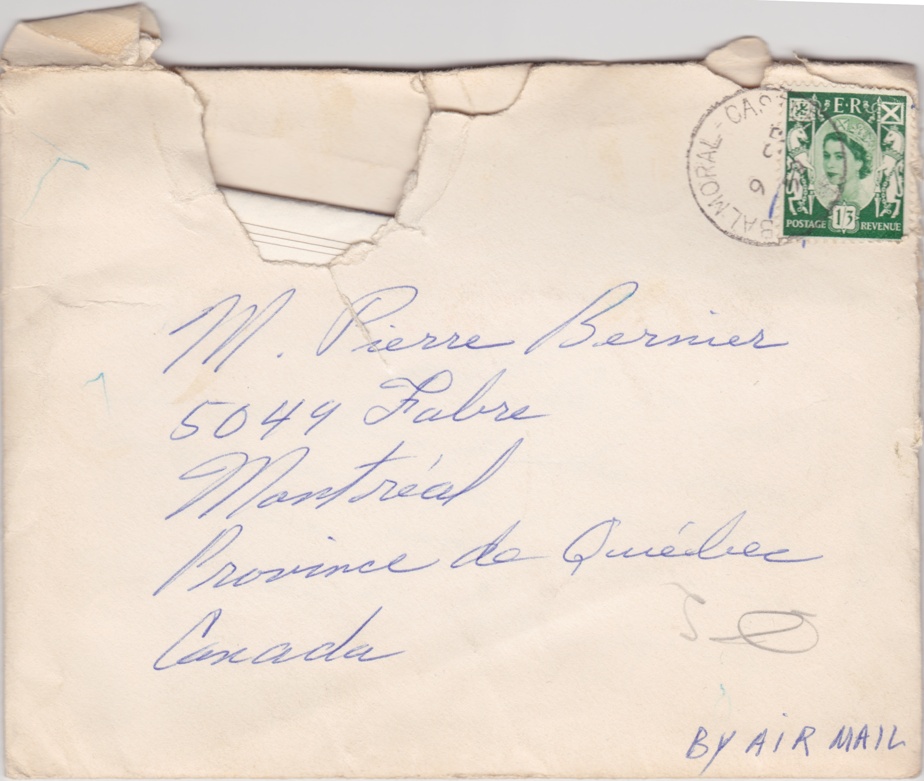 BALMORAL - CAS
9
E R
POSTAGE 1/3 REVENUE
M. Pierre Bernier
5049 Fabre
Montréal
Province de Québec
Canada
BY AIR MAIL